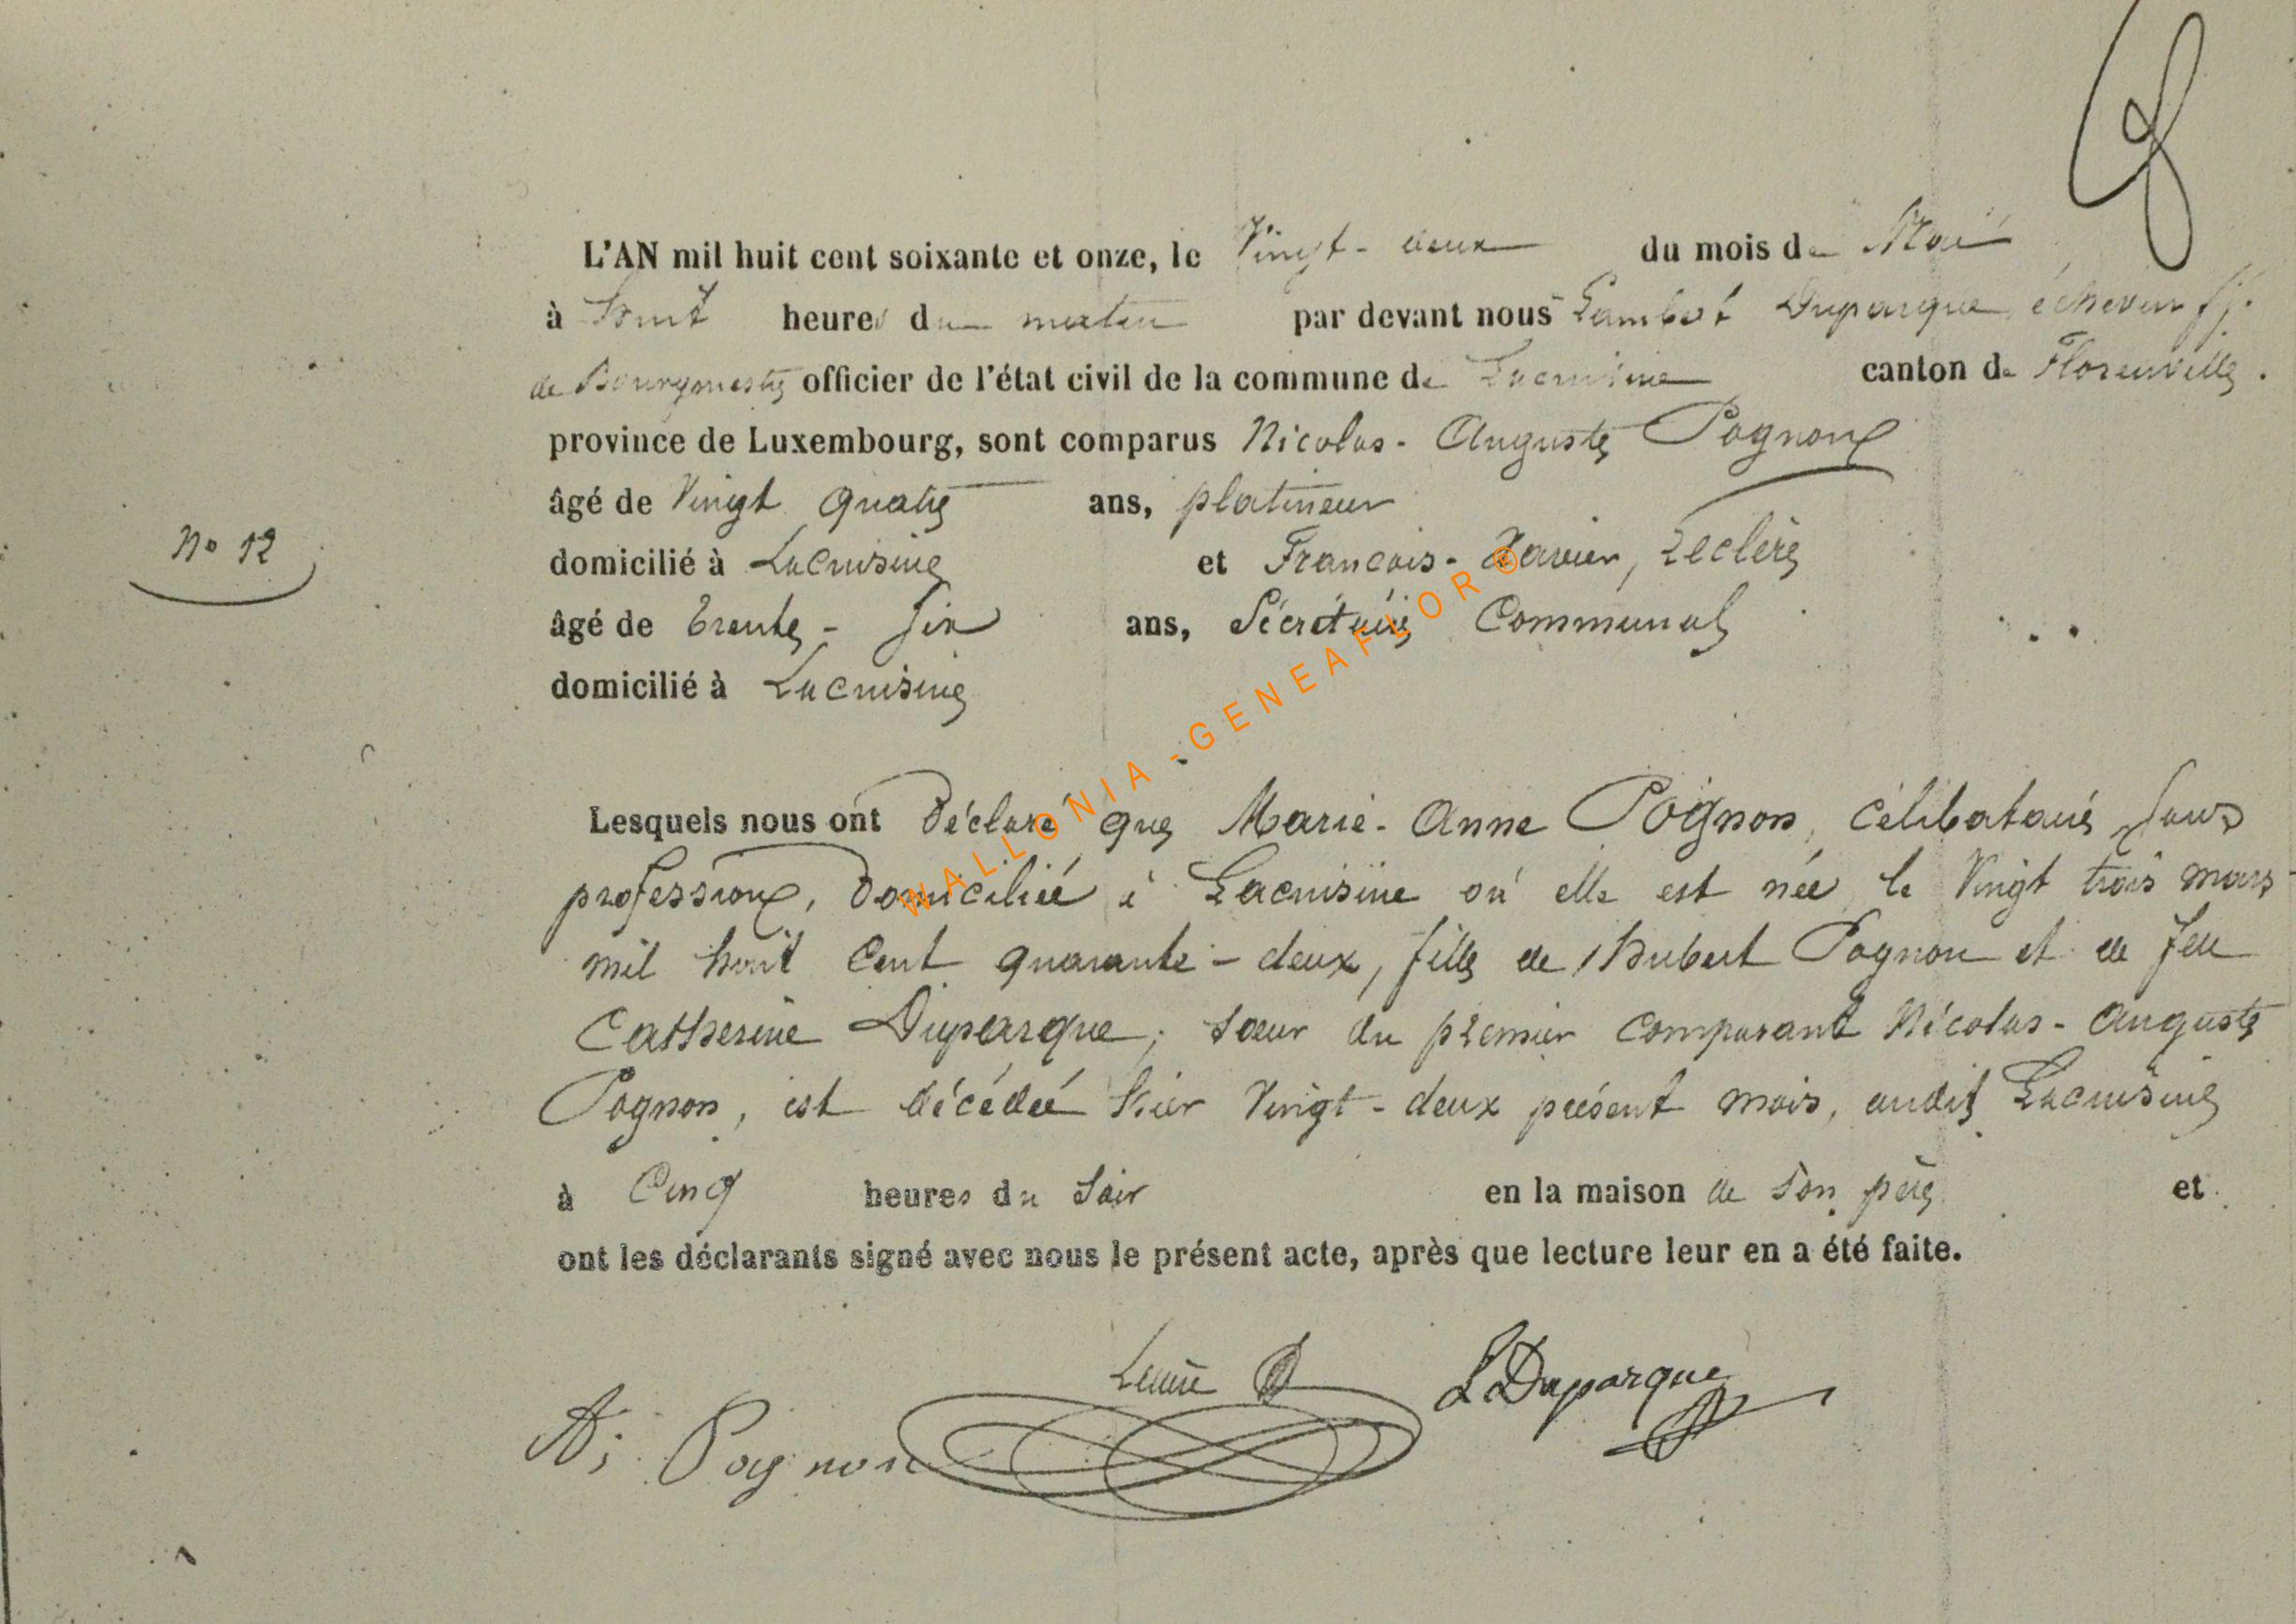 L'AN mil huit cent soixante et onze, le Vingt-deux du mois de Mai
à huit heures du matin par devant nous Lambert Duparque échevin ff.
de Bourgmestre officier de l'état civil de la commune de Lacuisine canton de Florenville.
province de Luxembourg, sont comparus Nicolas-Auguste Pognon
N° 12
âgé de Vingt quatre ans, platineur
domicilié à Lacuisine et Francois-Xavier, Leclère
âgé de trente-six ans, Sécrétaire Communal
domicilié à Lacuisine
Lesquels nous ont Déclaré que Marie-Anne Pognon, célibataire sans
profession, Domiciliée à Lacuisine où elle est née le Vingt trois mars
mil huit cent quarante-deux, fille de Hubert Pognon et de feu
Catherine Duparque, soeur du premier comparant Nicolas-Auguste
Pognon, est décédée hier Vingt-deux présent mois, audit Lacuisine
à Cinq heures du Soir en la maison de son père et
ont les déclarants signé avec nous le présent acte, après que lecture leur en a été faite.
L Duparque
A; Pognon
WALLONIA -GENEAFLOR ®